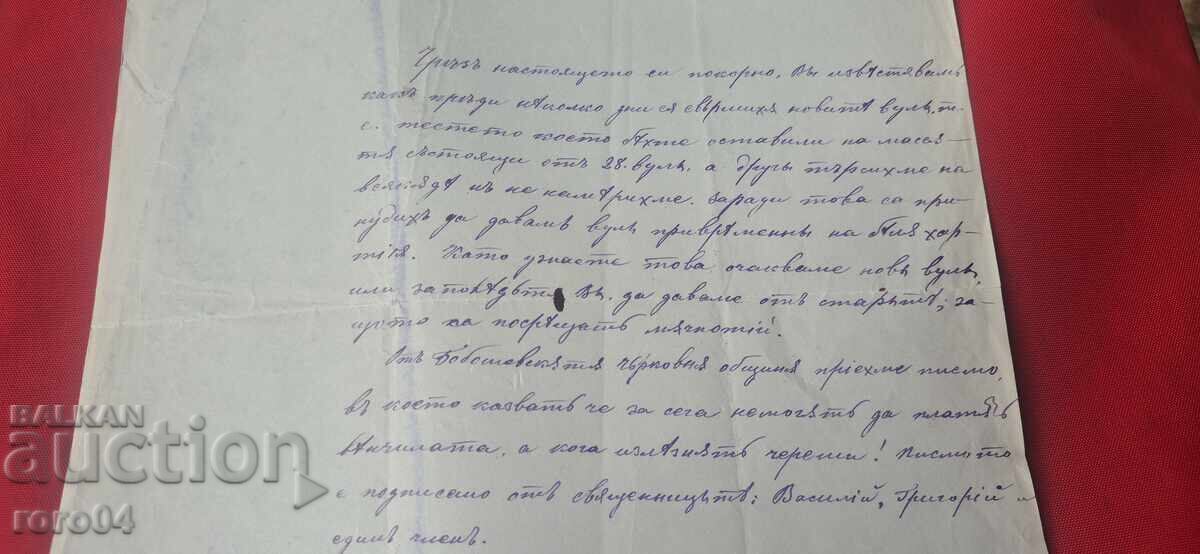 Чрѣзъ настоящето си покорно, Вы извѣстявамъ
какъ прѣди нѣколко дни ся свършихѫ новитѣ вулы, т.
е. тестето което бѣхте оставили на масѫ-
тѫ състоящи отъ 28. вулы, а другы търсихме на
всѫкѫдѣ нъ не намѣрихме. Заради това са при-
нудихъ да давамъ вулы привременны на бѣлѫ хар-
тіѭ. Като узнаете това очакваме новы вулы
или заповѣдьтѫ Вы. да даваме отъ старытѣ; за-
щото са посрѣщатъ мѫчнотіи.
Отъ Бобошевскѫтѫ Църковнѫ община пріехме писмо,
въ което казватъ че за сега немогѫтъ да платѫтъ
вѣнчилата, а кога излѣзнѫтъ череши! Писмото
е подписано отъ священницытѣ: Василій, Григорій и
единъ членъ.
BALKAN
auction
roro04